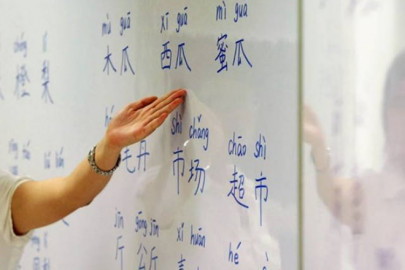 mù guā xī guā mì guā
橙 梨 木瓜 西瓜 蜜瓜
shì chǎng chāo shì
毛丹 市场 超市
jīn gōng jīn xǐ huān
斤 公斤 hé